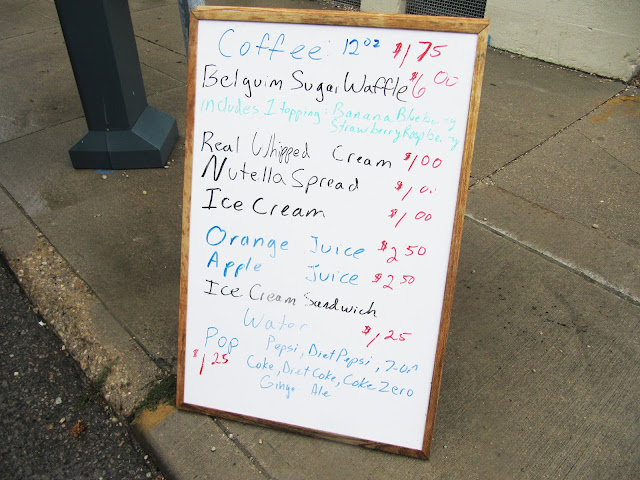 Coffee 12oz $1.75
Belguim Sugar Waffle $6.00
includes 1 topping: Banana Blueberry
Strawberry Raspberry
Real Whipped Cream $1.00
Nutella Spread $1.00
Ice Cream $1.00
Orange Juice $2.50
Apple Juice $2.50
Ice Cream Sandwich
Water $1.25
Pop Pepsi, Diet Pepsi, 7-up
$1.25 Coke, Diet Coke, Coke Zero
Ginger Ale